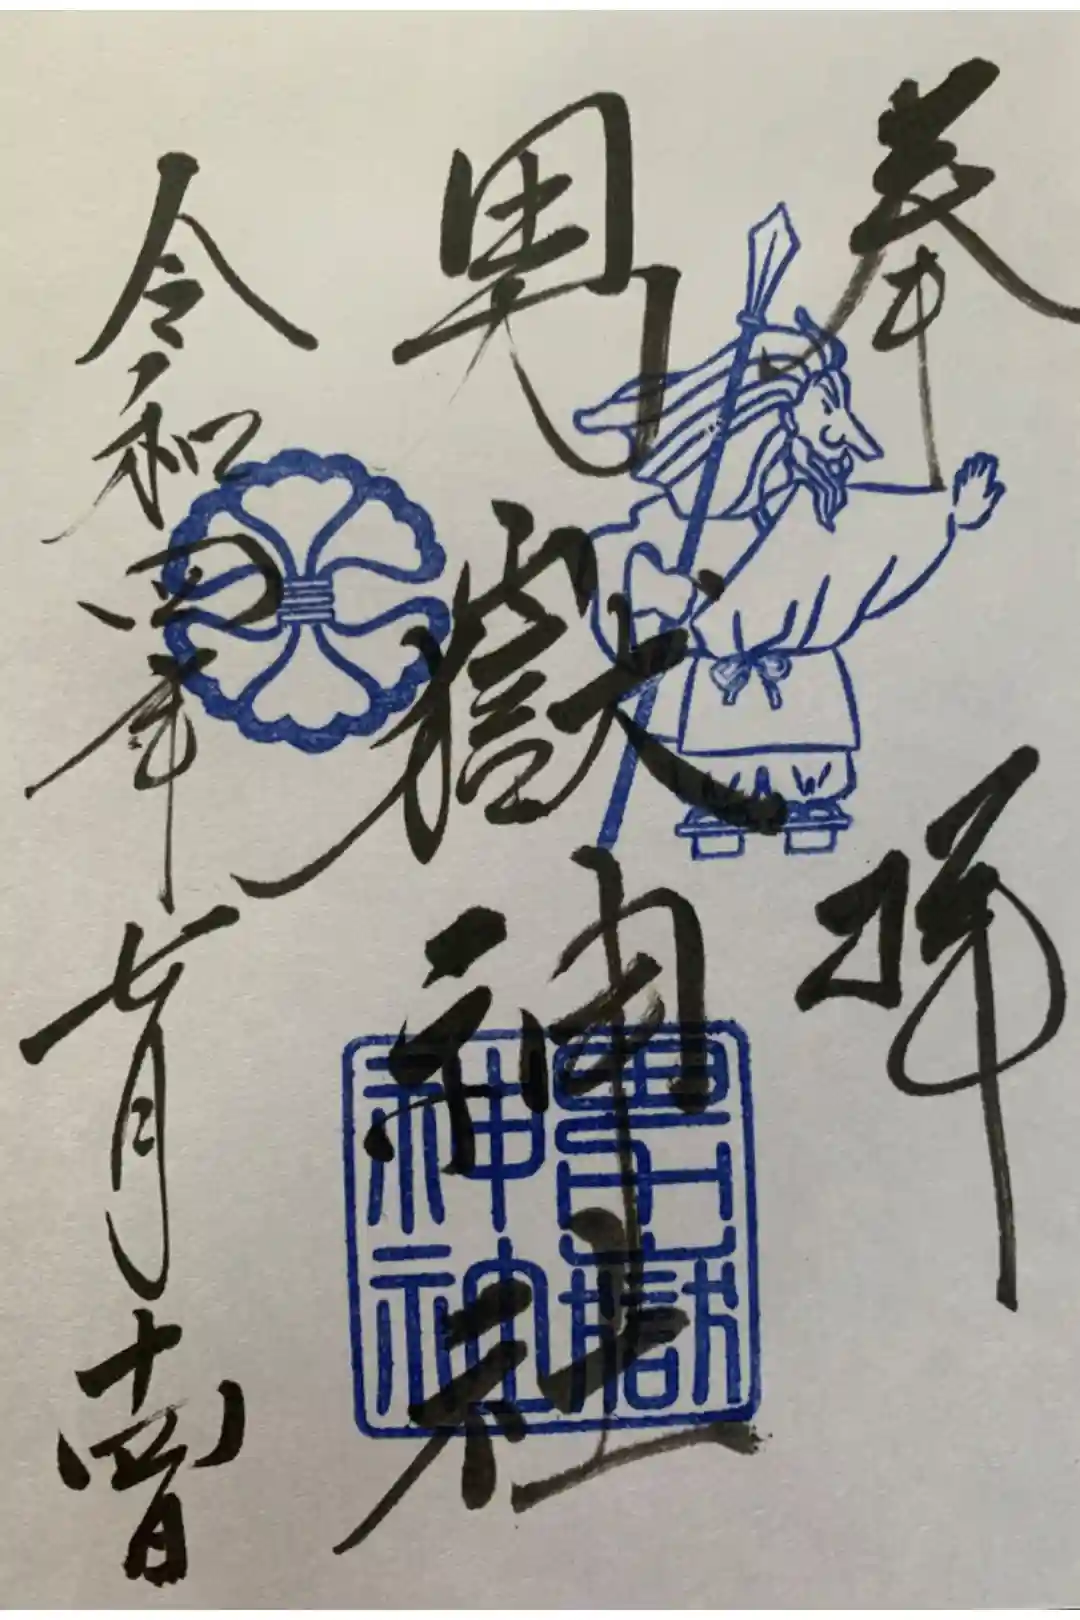 奉拝
男嶽神社
令和四年七月十四日
男嶽神社